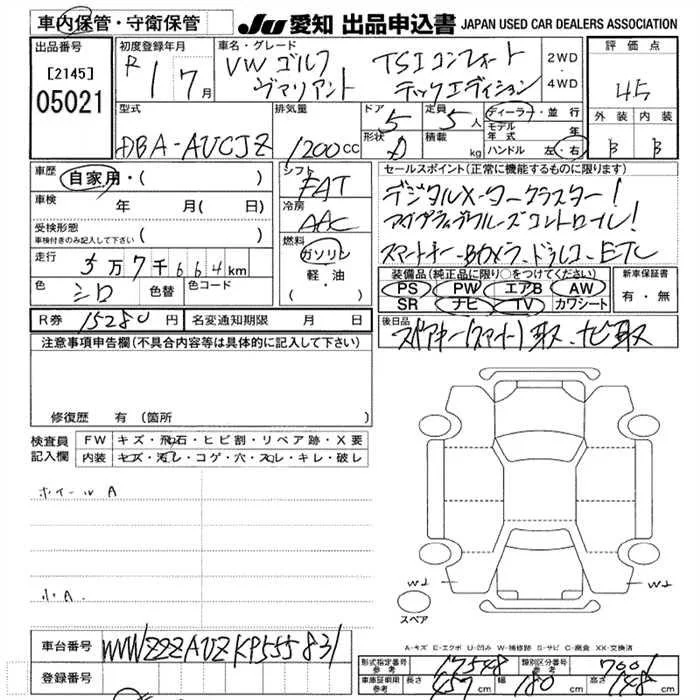 車内保管・守衛保管
JU 愛知 出品申込書 JAPAN USED CAR DEALERS ASSOCIATION
出品番号 初度登録年月 車名・グレード 評価点
[2145] R 1 年 7月 VW ゴルフ TSIコンフォート 2WD
05021 ヴァリアント テックエディション ・4WD 45
型式 排気量 ドア 定員 ディーラー・並行 外装 内装
DBA-AUCJZ 1200cc 5 5人 モデル年式 年 B B
形状 積載 kg ハンドル 左・右
車歴 自家用・( ) シフト FAT セールスポイント(正常に機能するものに限ります)
車検 年 月( 日) 冷房 AAC デジタルメータークラスター!
受検形態 アダプティブクルーズコントロール!
車検付きのみ記入して下さい ( ) 燃料 ガソリン スマートキー・Bカメラ・ドラレコ・ETC
走行 5万7千664km 軽・油
装備品(純正品に限り○をつけてください) 新車保証書
色 シロ 色替 色コード ・( ) PS PW エアB AW 有・無
SR ナビ TV カワシート
R券 15280円 名変通知期限 月 日 後日品 スペアキー(スマート)取、ナビ取
注意事項申告欄(不具合内容等は具体的に記入して下さい)
修復歴 有(箇所
検査員 FW キズ・飛石・ヒビ割・リペア跡・X要
記入欄 内装 キズ・汚レ・コゲ・穴・スレ・キレ・破レ
ホイールA
小A
W2 W2
スペア
A-キズ E-エクボ U-凹み W-補修跡 S-サビ C-腐食 XX-交換済
車台番号 WVWZZZAUZKP555831
型式指定番号 参考 17548 類別区分番号 参考 7001
登録番号 車庫証明用 参考 長さ 457cm 幅 180cm 高さ 148cm